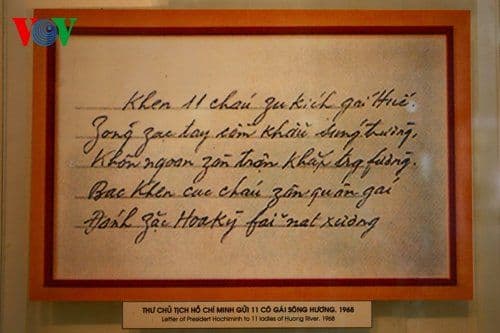 VOV
Khen 11 cháu zu kích gái Huế.
Zõng zạc tay cầm khẩu súng trường,
Khôn ngoan zàn trận khắp trg fường.
Bác khen các cháu zân quân gái
Đánh zặc Hoa Kỳ fải nát xương
THƯ CHỦ TỊCH HỒ CHÍ MINH GỬI 11 CÔ GÁI SÔNG HƯƠNG. 1968
Letter of President Hochiminh to 11 ladies of Huong River. 1968